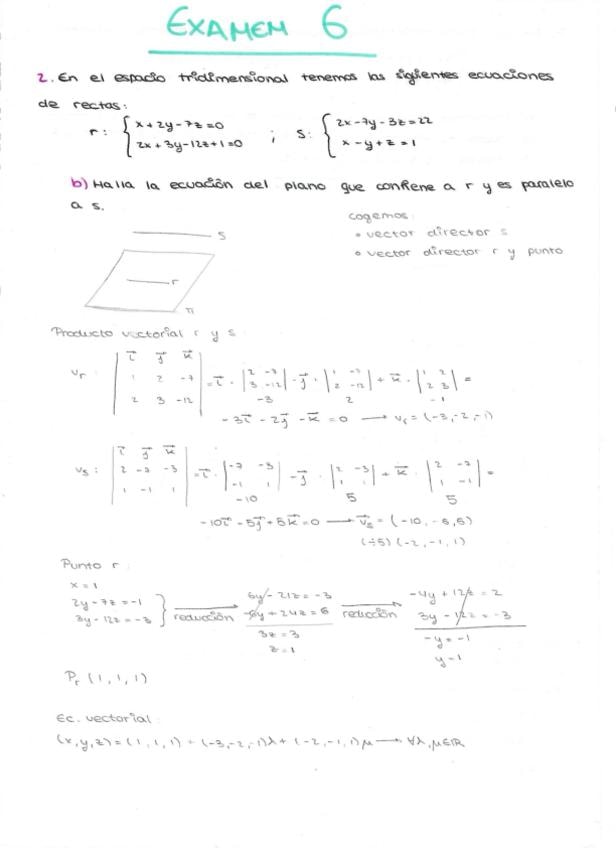 EXAMEN 6
2. En el espacio tridimensional tenemos las siguientes ecuaciones
de rectas:
r: { x+2y-7z=0 ; s: { 2x-7y-3z=22
2x+3y-12z+1=0 x-y+z=1
b) Halla la ecuación del plano que contiene a r y es paralelo
a s.
cogemos:
• vector director s
• vector director r y punto
s
r
π
Producto vectorial r y s
Vr: | i⃗ j⃗ k⃗ |
| 1 2 -7 | = i⃗ · | 2 -7 | - j⃗ · | 1 -7 | + k⃗ · | 1 2 | =
| 2 3 -12 | | 3 -12 | | 2 -12 | | 2 3 |
-3 2 -1
-3i⃗ - 2j⃗ - k⃗ = 0 → vr = (-3,-2,-1)
Vs: | i⃗ j⃗ k⃗ |
| 2 -7 -3 | = i⃗ · | -7 -3 | - j⃗ · | 2 -3 | + k⃗ · | 2 -7 | =
| 1 -1 1 | | -1 1 | | 1 1 | | 1 -1 |
-10 5 5
-10i⃗ - 5j⃗ + 5k⃗ = 0 → v⃗s = (-10,-5,5)
(÷5) (-2,-1,1)
Punto r:
x=1
2y-7z=-1
3y-12z=-3
} reducción →
6y-21z=-3
-6y+24z=6
3z=3
z=1
reducción →
-4y+12z=2
3y-12z=-3
-y=-1
y=1
Pr (1,1,1)
Ec. vectorial:
(x,y,z)=(1,1,1)+(-3,-2,-1)λ+(-2,-1,1)μ → ∀λ,μ∈ℝ